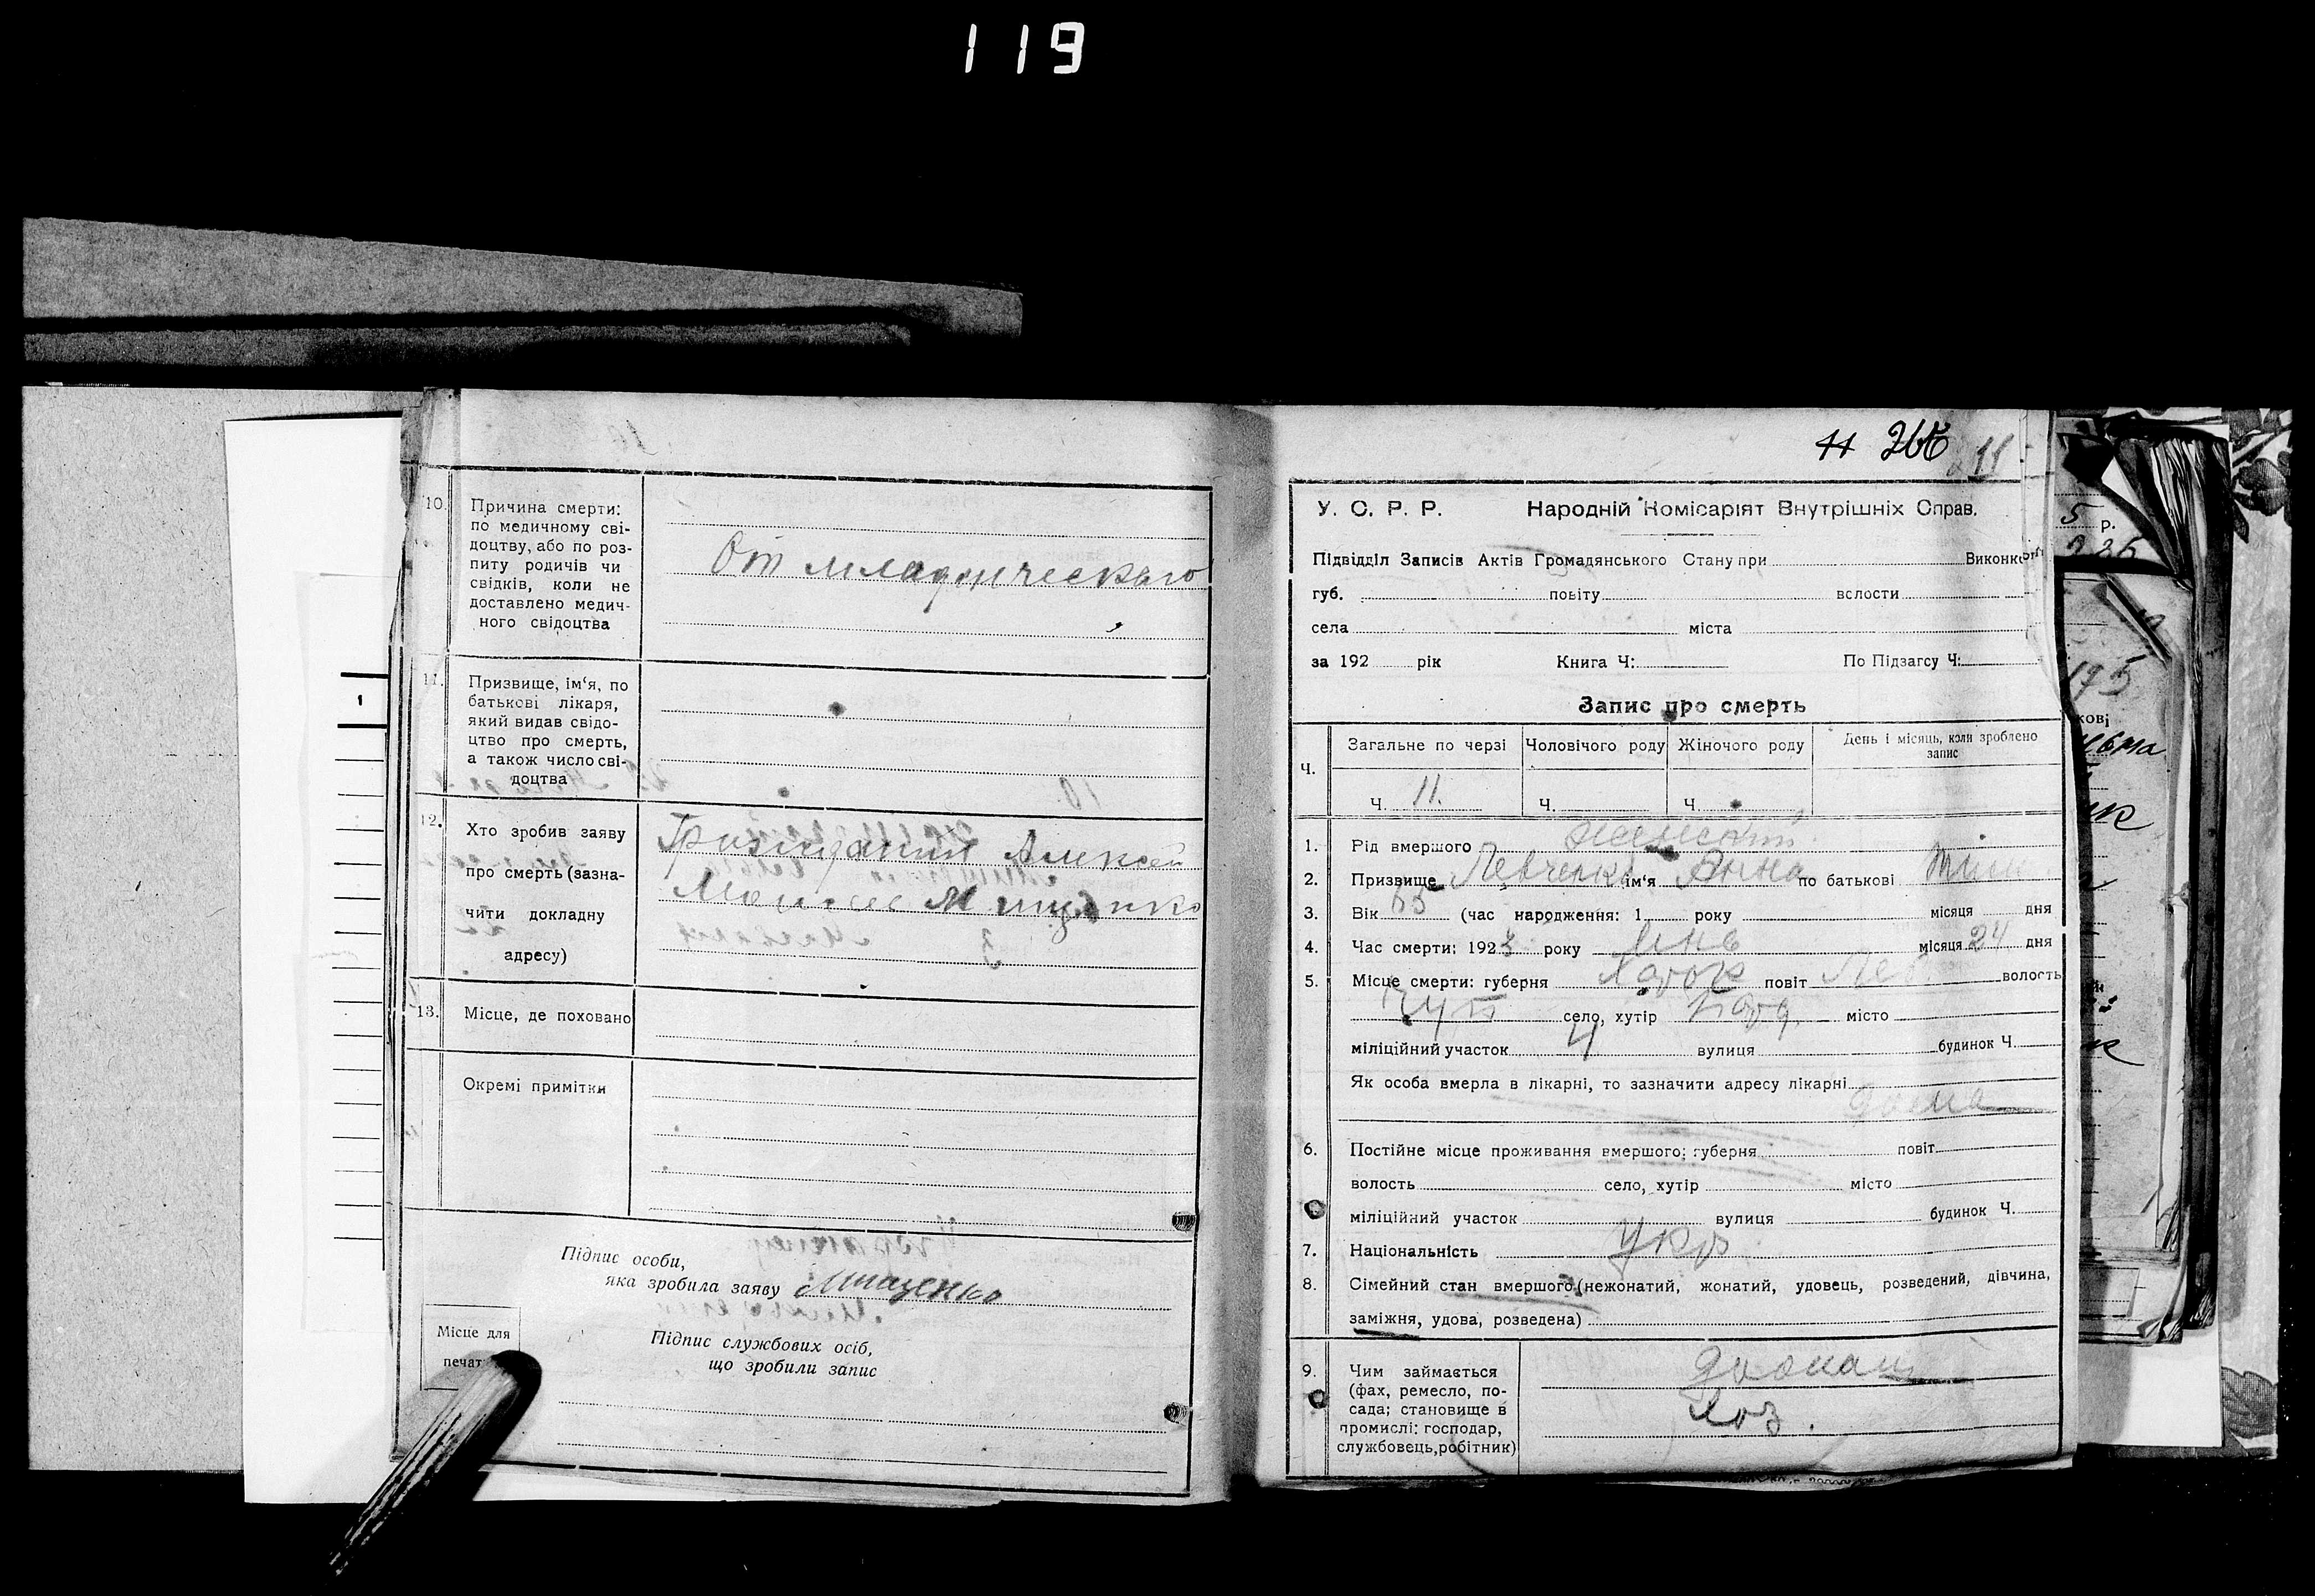 119
10.
Причина смерти:
по медичному сві-
доцтву, або по роз-
питу родичів чи
свідків, коли не
доставлено медич-
ного свідоцтва
От младенческаго
11.
Призвище, ім'я, по
батькові лікаря,
який видав свідо-
цтво про смерть,
а також число сві-
доцтва
12.
Хто зробив заяву
про смерть (зазна-
чити докладну
адресу)
Гражданин Алексей
Мищенко
13.
Місце, де поховано
Окремі примітки
Підпис особи,
яка зробила заяву Мищенко
Місце для
печат
Підпис службових осіб,
що зробили запис
11
У. С. Р. Р. Народній Комісаріят Внутрішніх Справ.
Підвідділ Записів Актів Громадянського Стану при Виконк
губ. повіту волости
села міста
за 192 рік Книга Ч: По Підзагсу Ч:
Запис про смерть
Ч. Загальне по черзі Чоловічого роду Жіночого роду День і місяць, коли зроблено
запис
Ч. 11. Ч. Ч.
1. Рід вмершого женский
2. Призвище Левченко ім'я Анна по батькові
3. Вік 65 (час народження: 1 року місяця дня
4. Час смерти: 1923 року янв місяця 24 дня
5. Місце смерти: губерня Харк повіт волость
село, хутір місто
міліційний участок вулиця будинок Ч.
Як особа вмерла в лікарні, то зазначити адресу лікарні
дома
6. Постійне місце проживання вмершого: губерня повіт
волость село, хутір місто
міліційний участок вулиця будинок Ч.
7. Національність Укр
8. Сімейний стан вмершого (нежонатий, жонатий, удовець, розведений, дівчина,
заміжня, удова, розведена)
9. Чим займається
(фах, ремесло, по-
сада; становище в
промислі: господар,
службовець, робітник)
домаш
Хоз.